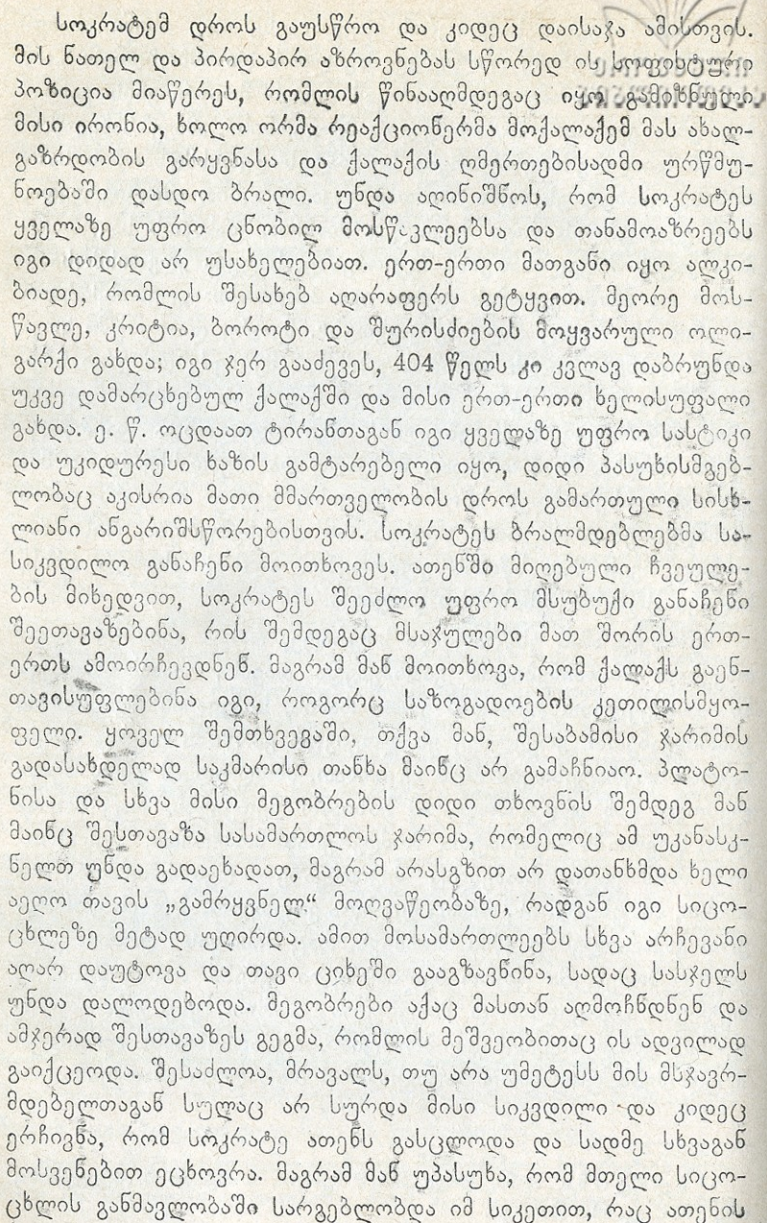 სოკრატემ დროს გაუსწრო და კიდეც დაისაჯა ამისთვის.
მის ნათელ და პირდაპირ აზროვნებას სწორედ ის სოფისტური
პოზიცია მიაწერეს, რომლის წინააღმდეგაც იყო გამიზნული
მისი ირონია, ხოლო ორმა რეაქციონერმა მოქალაქემ მას ახალ-
გაზრდობის გარყვნასა და ქალაქის ღმერთებისადმი ურწმუ-
ნოებაში დასდო ბრალი. უნდა აღინიშნოს, რომ სოკრატეს
ყველაზე უფრო ცნობილ მოსწავლეებსა და თანამოაზრეებს
იგი დიდად არ უსახელებიათ. ერთ-ერთი მათგანი იყო ალკი-
ბიადე, რომლის შესახებ აღარაფერს გეტყვით. მეორე მოს-
წავლე, კრიტია, ბოროტი და შურისძიების მოყვარული ოლი-
გარქი გახდა; იგი ჯერ გააძევეს, 404 წელს კი კვლავ დაბრუნდა
უკვე დამარცხებულ ქალაქში და მისი ერთ-ერთი ხელისუფალი
გახდა. ე. წ. ოცდაათ ტირანთაგან იგი ყველაზე უფრო სასტიკი
და უკიდურესი ხაზის გამტარებელი იყო, დიდი პასუხისმგებ-
ლობაც აკისრია მათი მმართველობის დროს გამართული სისხ-
ლიანი ანგარიშსწორებისთვის. სოკრატეს ბრალმდებლებმა სა-
სიკვდილო განაჩენი მოითხოვეს. ათენში მიღებული ჩვეულე-
ბის მიხედვით, სოკრატეს შეეძლო უფრო მსუბუქი განაჩენი
შეეთავაზებინა, რის შემდეგაც მსაჯულები მათ შორის ერთ-
ერთს ამოირჩევდნენ. მაგრამ მან მოითხოვა, რომ ქალაქს გაენ-
თავისუფლებინა იგი, როგორც საზოგადოების კეთილისმყო-
ფელი. ყოველ შემთხვევაში, თქვა მან, შესაბამისი ჯარიმის
გადასახდელად საკმარისი თანხა მაინც არ გამაჩნიაო. პლატო-
ნისა და სხვა მისი მეგობრების დიდი თხოვნის შემდეგ მან
მაინც შესთავაზა სასამართლოს ჯარიმა, რომელიც ამ უკანასკ-
ნელთ უნდა გადაეხადათ, მაგრამ არასგზით არ დათანხმდა ხელი
აეღო თავის „გამრყვნელ“ მოღვაწეობაზე, რადგან იგი სიცო-
ცხლეზე მეტად უღირდა. ამით მოსამართლეებს სხვა არჩევანი
აღარ დაუტოვა და თავი ციხეში გააგზავნინა, სადაც სასჯელს
უნდა დალოდებოდა. მეგობრები აქაც მასთან აღმოჩნდნენ და
ამჯერად შესთავაზეს გეგმა, რომლის მეშვეობითაც ის ადვილად
გაიქცეოდა. შესაძლოა, მრავალს, თუ არა უმეტესს მის მსჯავრ-
მდებელთაგან სულაც არ სურდა მისი სიკვდილი და კიდეც
ერჩივნა, რომ სოკრატე ათენს გასცლოდა და სადმე სხვაგან
მოსვენებით ეცხოვრა. მაგრამ მან უპასუხა, რომ მთელი სიცო-
ცხლის განმავლობაში სარგებლობდა იმ სიკეთით, რაც ათენის